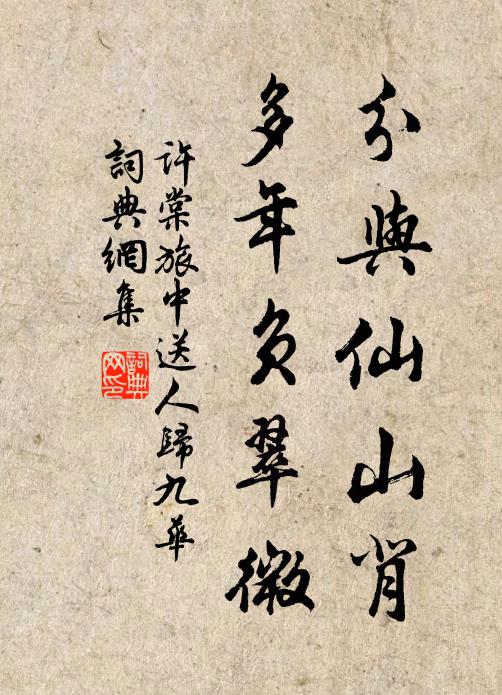 分與仙山背
多年負翠微
許棠旅中送人歸九華
詞典網集
詞典
网印